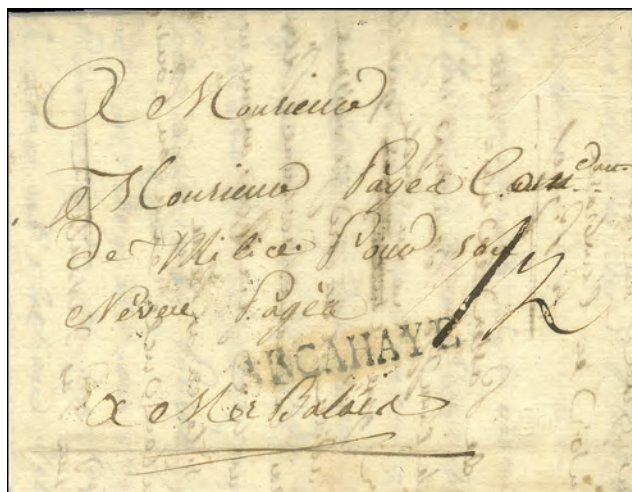 A Monsieur
Monsieur Pagés Com̃dan
de Milice Pour son
Neveu Pagés
12
BECAHAYE
a Mirbalais